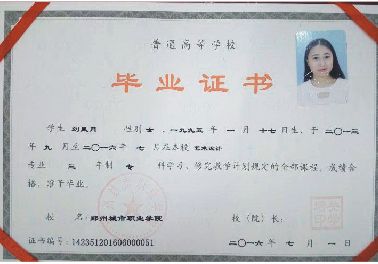 普通高等学校
毕业证书
学生 刘昱月 性别 女，一九九五 年 一 月 十七 日生，于 二〇一三
年 九 月至 二〇一六 年 七 月在本校 艺术设计
专业 三 年制 专 科学习，修完教学计划规定的全部课程，成绩合
格，准予毕业。
校 名：郑州城市职业学院 校（院）长：
证书编号：142351201606000051 二〇一六 年 七 月 一 日